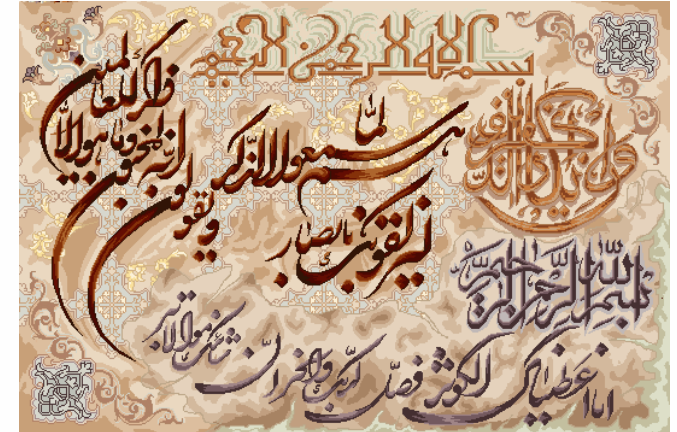 بسم الله الرحمن الرحيم
وان يكاد الذين كفروا
ليزلقونك بابصارهم
لما سمعوا الذكر
ويقولون انه لمجنون وما هو الا
ذكر للعالمين
بسم الله الرحمن الرحيم
انا اعطيناك الكوثر فصل لربك وانحر ان شانئك هو الابتر